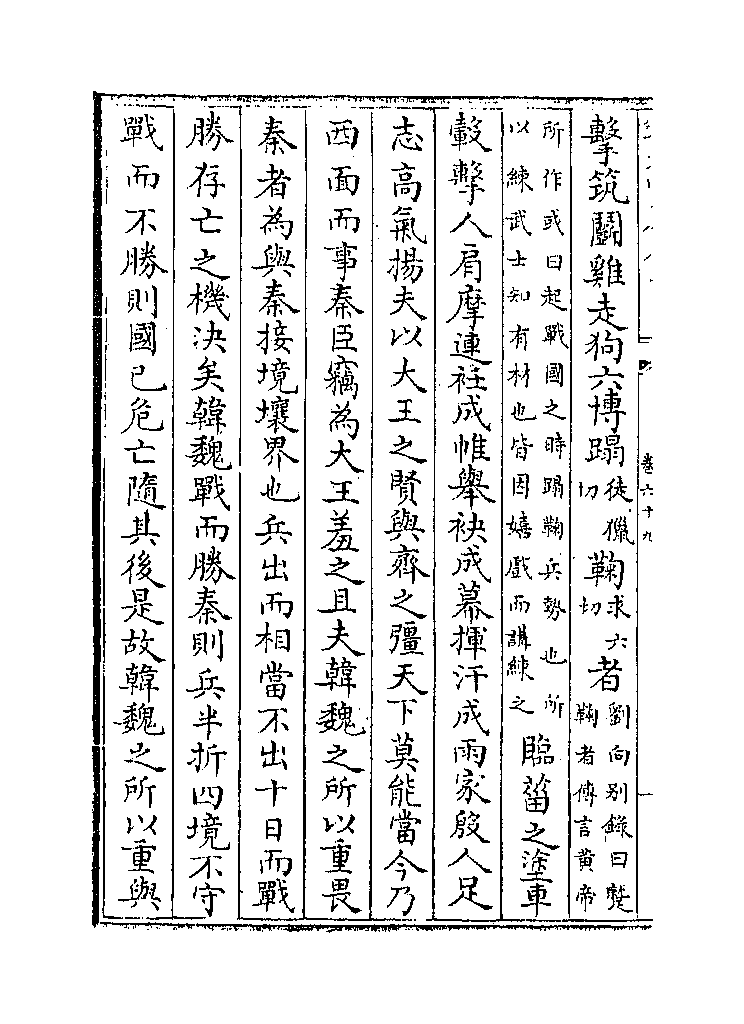 卷六十九
擊筑鬬雞走狗六博蹋徒獵切鞠求六切者劉向别錄曰蹵鞠者傳言黄帝
所作或曰起戰國之時蹋鞠兵勢也所以練武士知有材也皆因嬉戲而講練之臨菑之塗車
轂擊人肩摩連衽成帷舉袂成幕揮汗成雨家殷人足
志高氣揚夫以大王之賢與齊之彊天下莫能當今乃
西面而事秦臣竊為大王羞之且夫韓魏之所以重畏
秦者為與秦接境壤界也兵出而相當不出十日而戰
勝存亡之機决矣韓魏戰而勝秦則兵半折四境不守
戰而不勝則國已危亡隨其後是故韓魏之所以重與